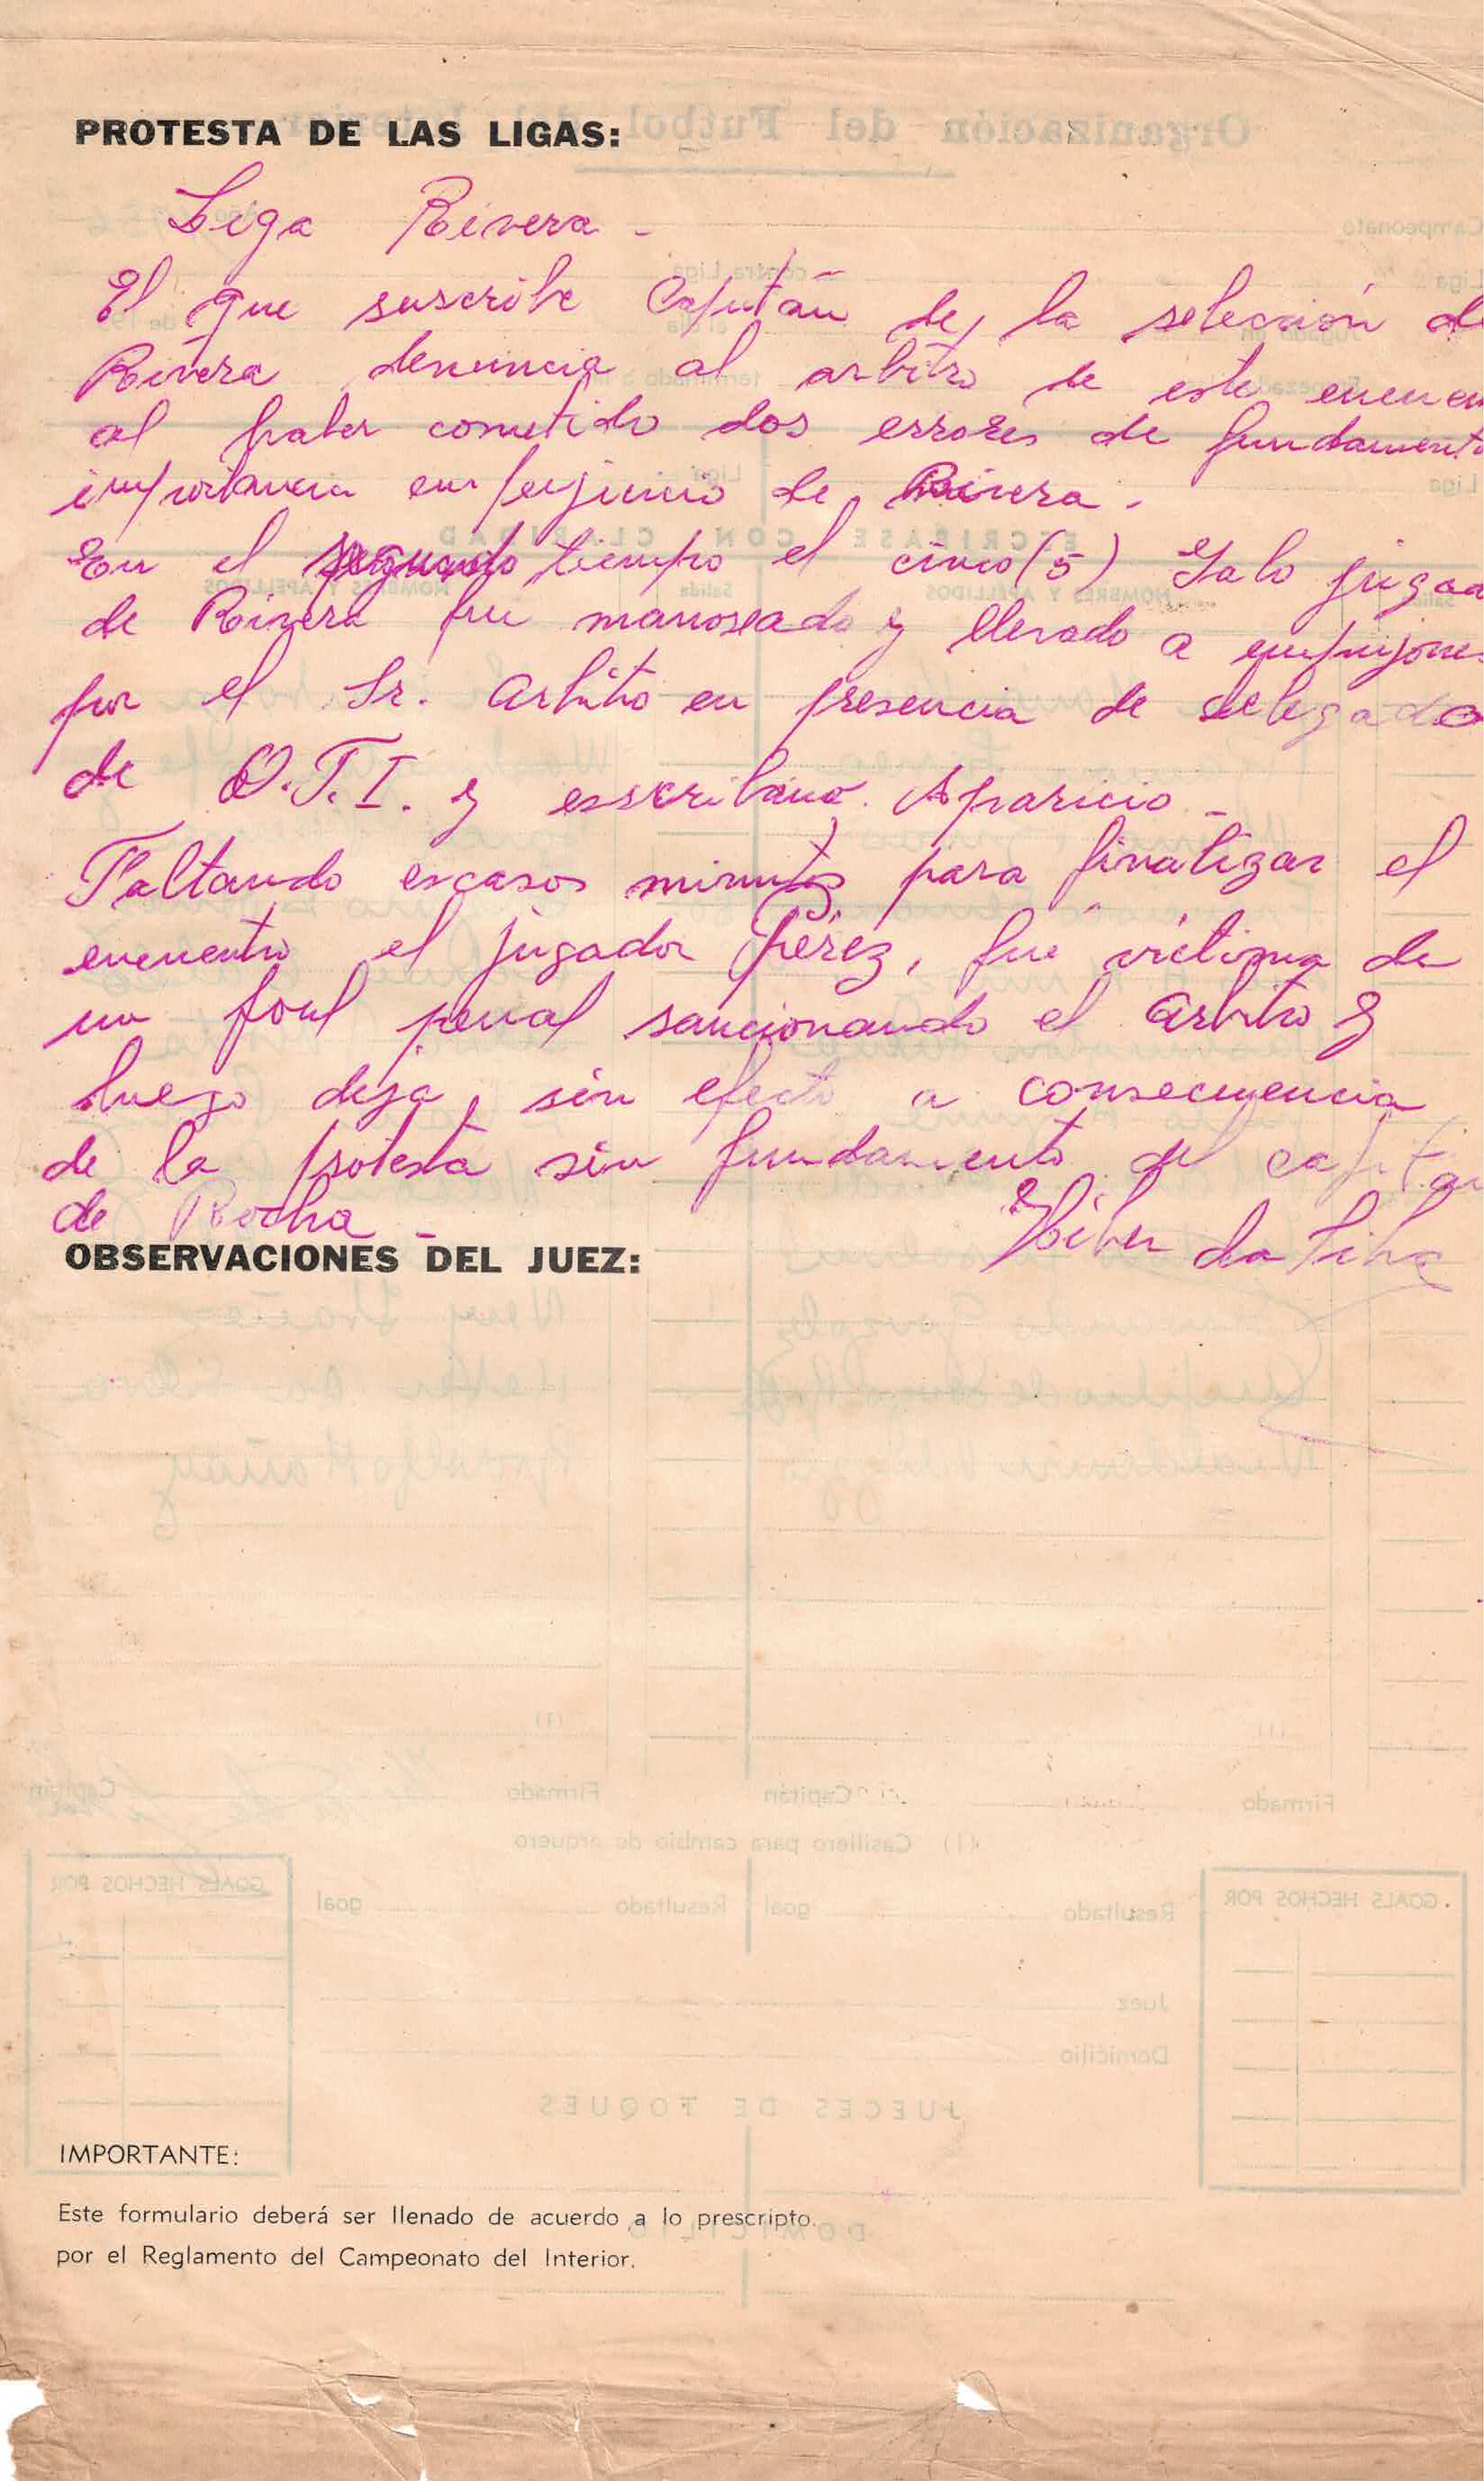 PROTESTA DE LAS LIGAS:
Liga Rivera -
El que suscribe Capitán de la selección de
Rivera denuncia al arbitro de este encuen
al haber cometido dos errores de fundament
importancia en perjuicio de Rivera.
En el segundo tiempo el cinco (5) Galo jugad
de Rivera fue manoseado y llevado a empujones
por el Sr. Arbitro en presencia de delegado
de O.F.I. y escribano Aparicio -
Faltando escasos minutos para finalizar el
encuentro el jugador Pérez, fue víctima de
un foul penal sancionando el arbitro y
luego deja, sin efecto a consecuencia
de la protesta sin fundamento del capitan
de Rocha -
Heber da Silva
OBSERVACIONES DEL JUEZ:
IMPORTANTE:
Este formulario deberá ser llenado de acuerdo a lo prescripto.
por el Reglamento del Campeonato del Interior.